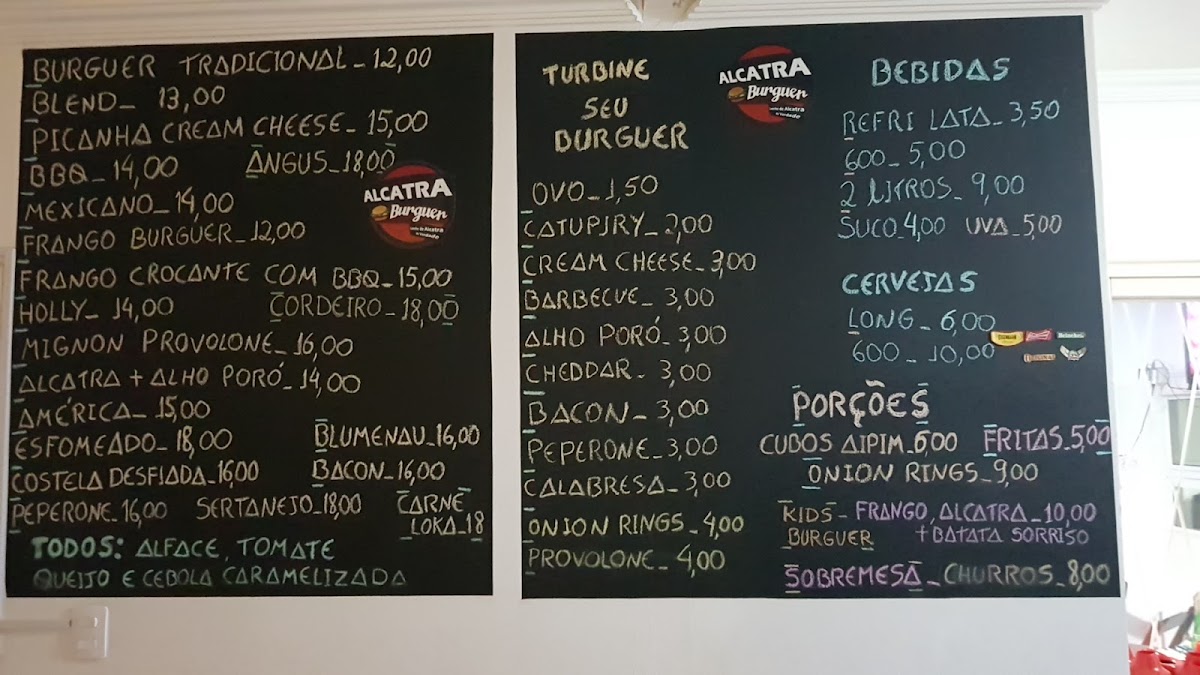 BURGUER TRADICIONAL_12,00
BLEND_ 13,00
PICANHA CREAM CHEESE_ 15,00
BBQ_ 14,00 ANGUS_18,00
MEXICANO_14,00
FRANGO BURGUER_12,00
FRANGO CROCANTE COM BBQ_15,00
HOLLY_ 14,00 CORDEIRO_18,00
MIGNON PROVOLONE_16,00
ALCATRA + ALHO PORÓ_14,00
AMÉRICA_ 15,00
ESFOMEADO_ 18,00 BLUMENAU_16,00
COSTELA DESFIADA_16,00 BACON_16,00
PEPERONE_16,00 SERTANEJO_18,00 CARNE
LOKA_18
TODOS: ALFACE, TOMATE
QUEIJO E CEBOLA CARAMELIZADA
ALCATRA
Burguer
TURBINE
SEU
BURGUER
ALCATRA
Burguer
OVO_1,50
CATUPIRY_ 2,00
CREAM CHEESE_3,00
BARBECUE_ 3,00
ALHO PORÓ_3,00
CHEDDAR_ 3,00
BACON_ 3,00
PEPERONE_3,00
CALABRESA_3,00
ONION RINGS_4,00
PROVOLONE_ 4,00
BEBIDAS
REFRI LATA_3,50
600_ 5,00
2 LITROS_9,00
SUCO_4,00 UVA_5,00
CERVEJAS
LONG_6,00
600_10,00
PORÇÕES
CUBOS AIPIM_6,00 FRITAS_5,00
ONION RINGS_9,00
KIDS_ FRANGO, ALCATRA_10,00
BURGUER + BATATA SORRISO
SOBREMESA_CHURROS_8,00